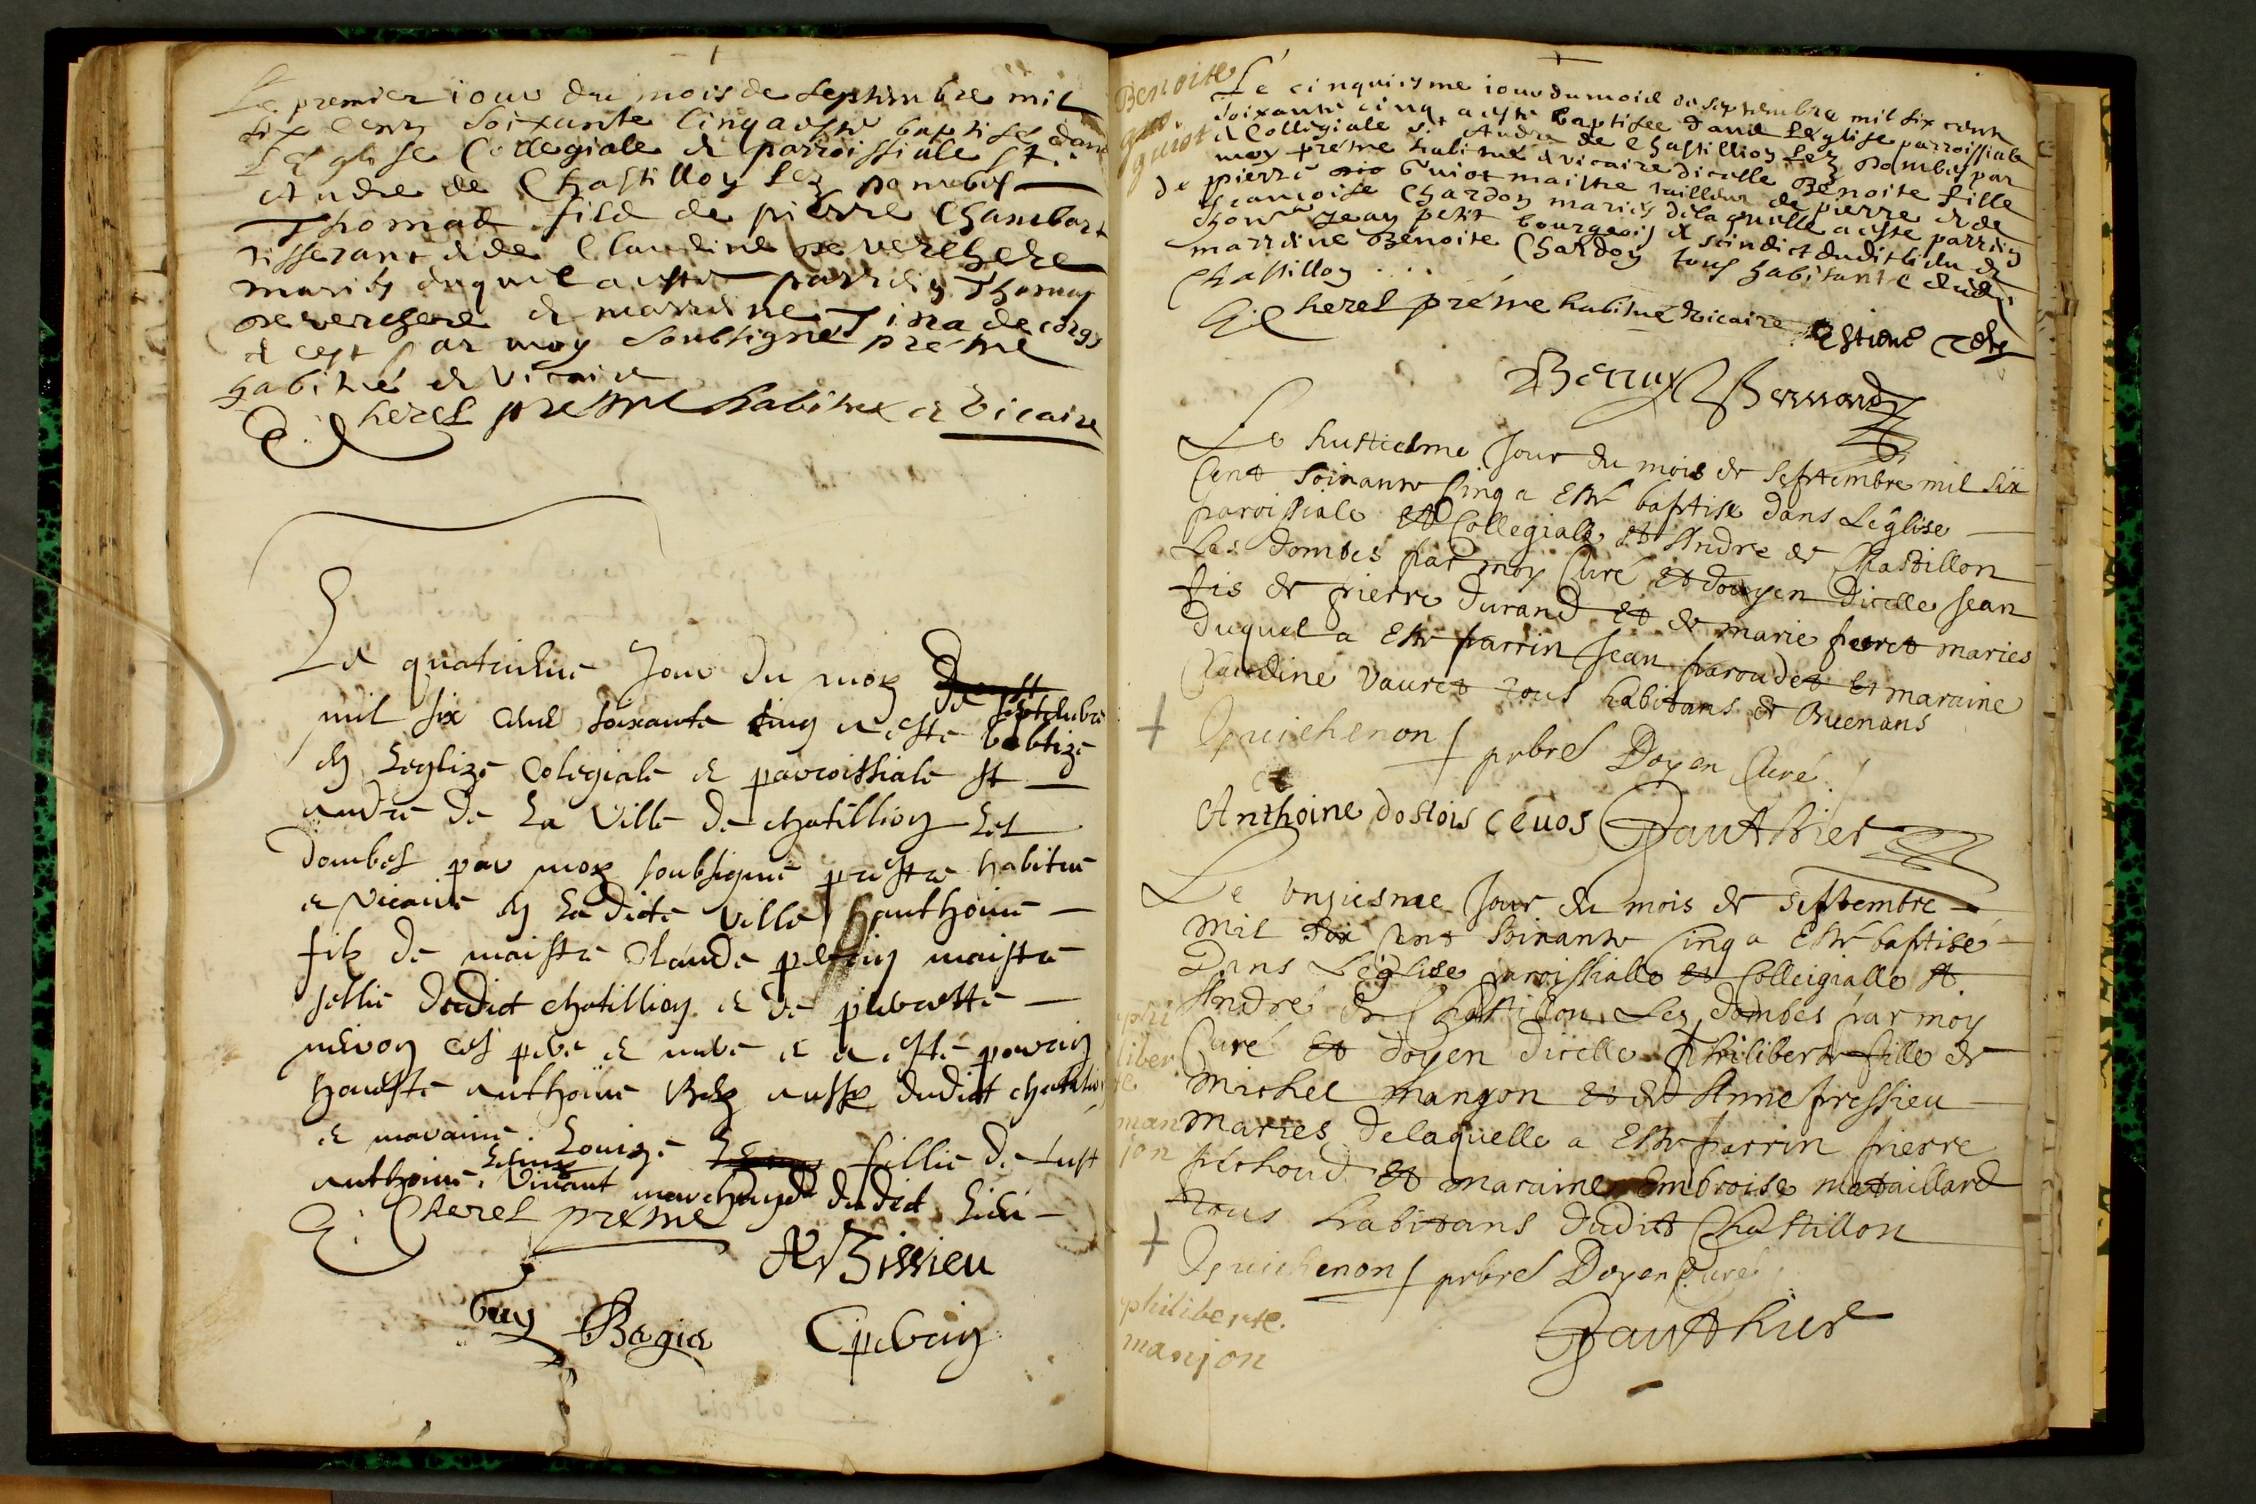 Le premier iour du mois de septembre mil
six cent soixante cinq a esté baptisé dans
L'esglise Collegiale et parroissiale St.
Andre de Chastilloy lez dombes
Thomas fils de pierre Chambart
tisserant et de Claudine de verchere
mariés duquel a esté parrin Thomas
de verchere et marrine
et cest par moy soubsigné prestre
habitué et vicaire
Cherel prestre habitué et vicaire
Le quatriesme Jour du moys
de septembre
mil six cent soixante cinq a esté babtizé
en Leglize Colegiale et parroissiale st
andré de La Ville de chatillion les
dombes par moy soubsigné prestre habitué
et vicaire en La dicte ville hanthoine
filz de maistre Claude perrin maistre
sellie dudict chatillion et de pierrette
ces pere et mere et a esté parrin
honeste anthoine aussy dudict chatillion
et maraine Louize fillie de
anthoine Vivant marchand dudict Lieu
Cherel prestre
Bissieu
Guy Bagie C perrin
Benoite
guiot
Le cinquiesme iour du mois de septembre mil six cent
soixante cinq a esté baptisee dans Leglise parroissiale
et Collegiale St Andre de Chastillioy Lez Dombes par
moy prestre habitué et vicaire dicelle Benoite fille
de pierre Guiot maistre tailleur de pierre et de
francoise Chardoy mariés de laquelle a esté parrin
Jean petit bourgeois et scindict dudit lieu et
marrine Benoite Chardoy tous habitants dudit
Chastilloy
Cherel prestre habitué et vicaire
Bernard
Le huitiesme Jour du mois de septembre mil six
Cent soixante Cinq a Esté baptisé dans Léglise
paroissiale et Collegialle st Andre de Chastillon
Les dombes par moy Curé et doyen dicelle Jean
fis de pierre durand et de marie maries
duquel a Esté parrin Jean paroudet et maraine
Claudine Vauret tous habitans de Buenans
Guichenon prbre Doyen Curé
Anthoine dostois Gauthier
Le onziesme Jour du mois de septembre
mil six Cent soixante Cinq a Esté baptisé
Dans Léglise paroissialle et Collegialle st.
André de Chastillon Lez dombes par moy
Curé et doyen dicelle philiberte fille de
michel manyon et de Anne pressieu
maries delaquelle a Esté parrin pierre
péchoud et maraine Embroise mataillard
tous habitans dudit Chastillon
phi
liber
te
man
jon
Guichenon prbre Doyen Curé
philiberte
manjon
Gauthier